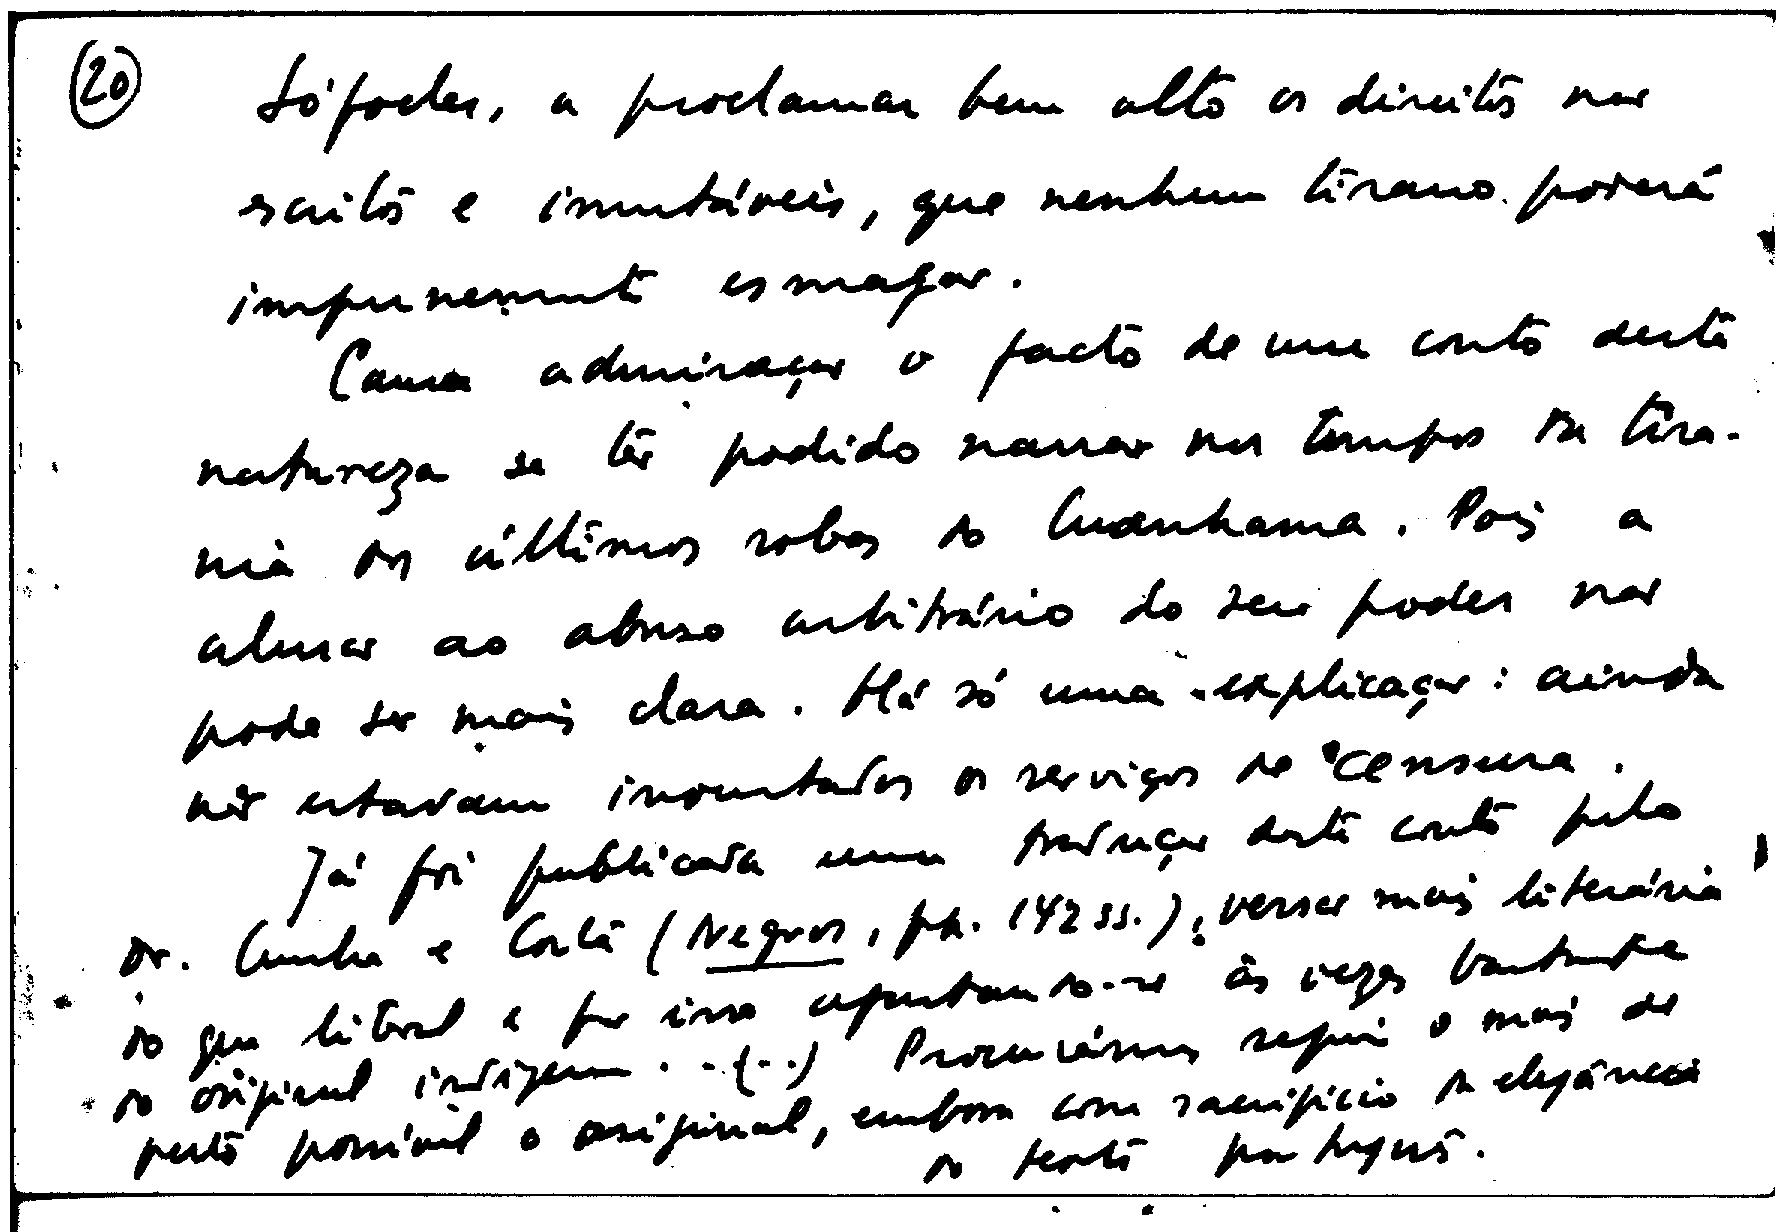 (20) Sófocles, a proclamar bem alto os direitos não
escritos e imutáveis, que nenhum tirano poderá
impunemente esmagar.
Causa admiração o facto de um conto desta
natureza se ter podido narrar nos tempos da tira-
nia dos últimos sobas do Cuanhama. Pois a
alusão ao abuso arbitrário do seu poder não
pode ser mais clara. Há só uma explicação: ainda
não estavam inventados os serviços de censura.
Já foi publicada uma tradução deste conto pelo
Dr. Cunha e Costa (Negros, pp. 142 ss.), versão mais literária
do que literal e por isso afastando-se às vezes bastante
do original indígena...(...) Procurámos seguir o mais de
perto possível o original, embora com sacrifício da elegância
do texto português.